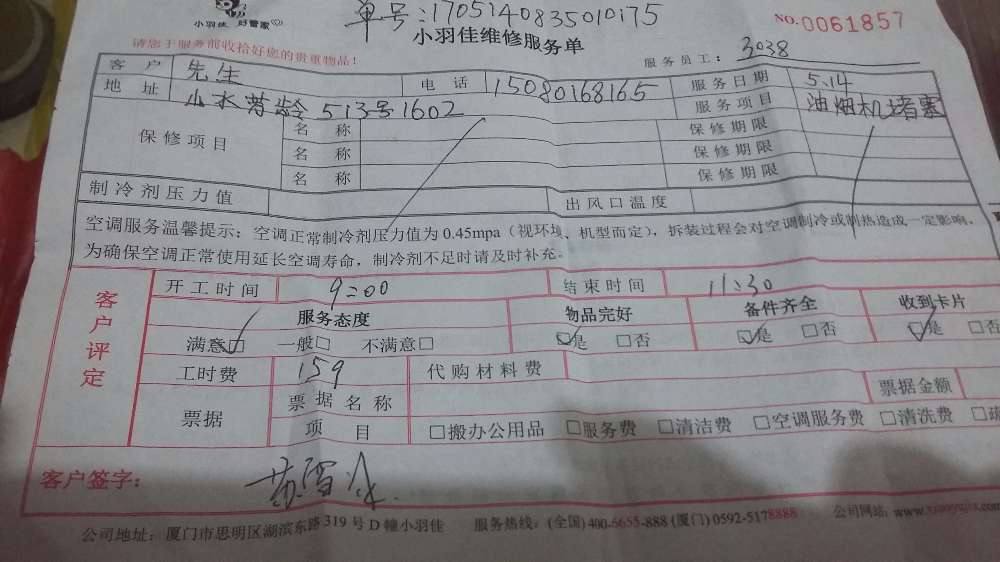 单号:1705140835010175
小羽佳 好管家
NO.0061857
小羽佳维修服务单
请您于服务前收拾好您的贵重物品!
服务员工: 3038
客户 先生 电话 15080168165 服务日期 5.14
地址 513号1602 服务项目 油烟机堵塞
保修项目 名称 保修期限
名称 保修期限
名称 保修期限
制冷剂压力值 出风口温度
空调服务温馨提示: 空调正常制冷剂压力值为 0.45mpa (视环境、机型而定), 拆装过程会对空调制冷或制热造成一定影响,
为确保空调正常使用延长空调寿命, 制冷剂不足时请及时补充。
客户评定
开工时间 9:00 结束时间 11:30
服务态度 物品完好 备件齐全 收到卡片
满意☑ 一般□ 不满意□ ☑是 □否 ☑是 □否 ☑是 □否
工时费 159 代购材料费
票据 票据名称 票据金额
项目 □搬办公用品 □服务费 □清洁费 □空调服务费 □清洗费
客户签字:
公司地址: 厦门市思明区湖滨东路 319 号 D 幢小羽佳 服务热线: (全国) 400-6655-888 (厦门) 0592-5178888 公司网站: